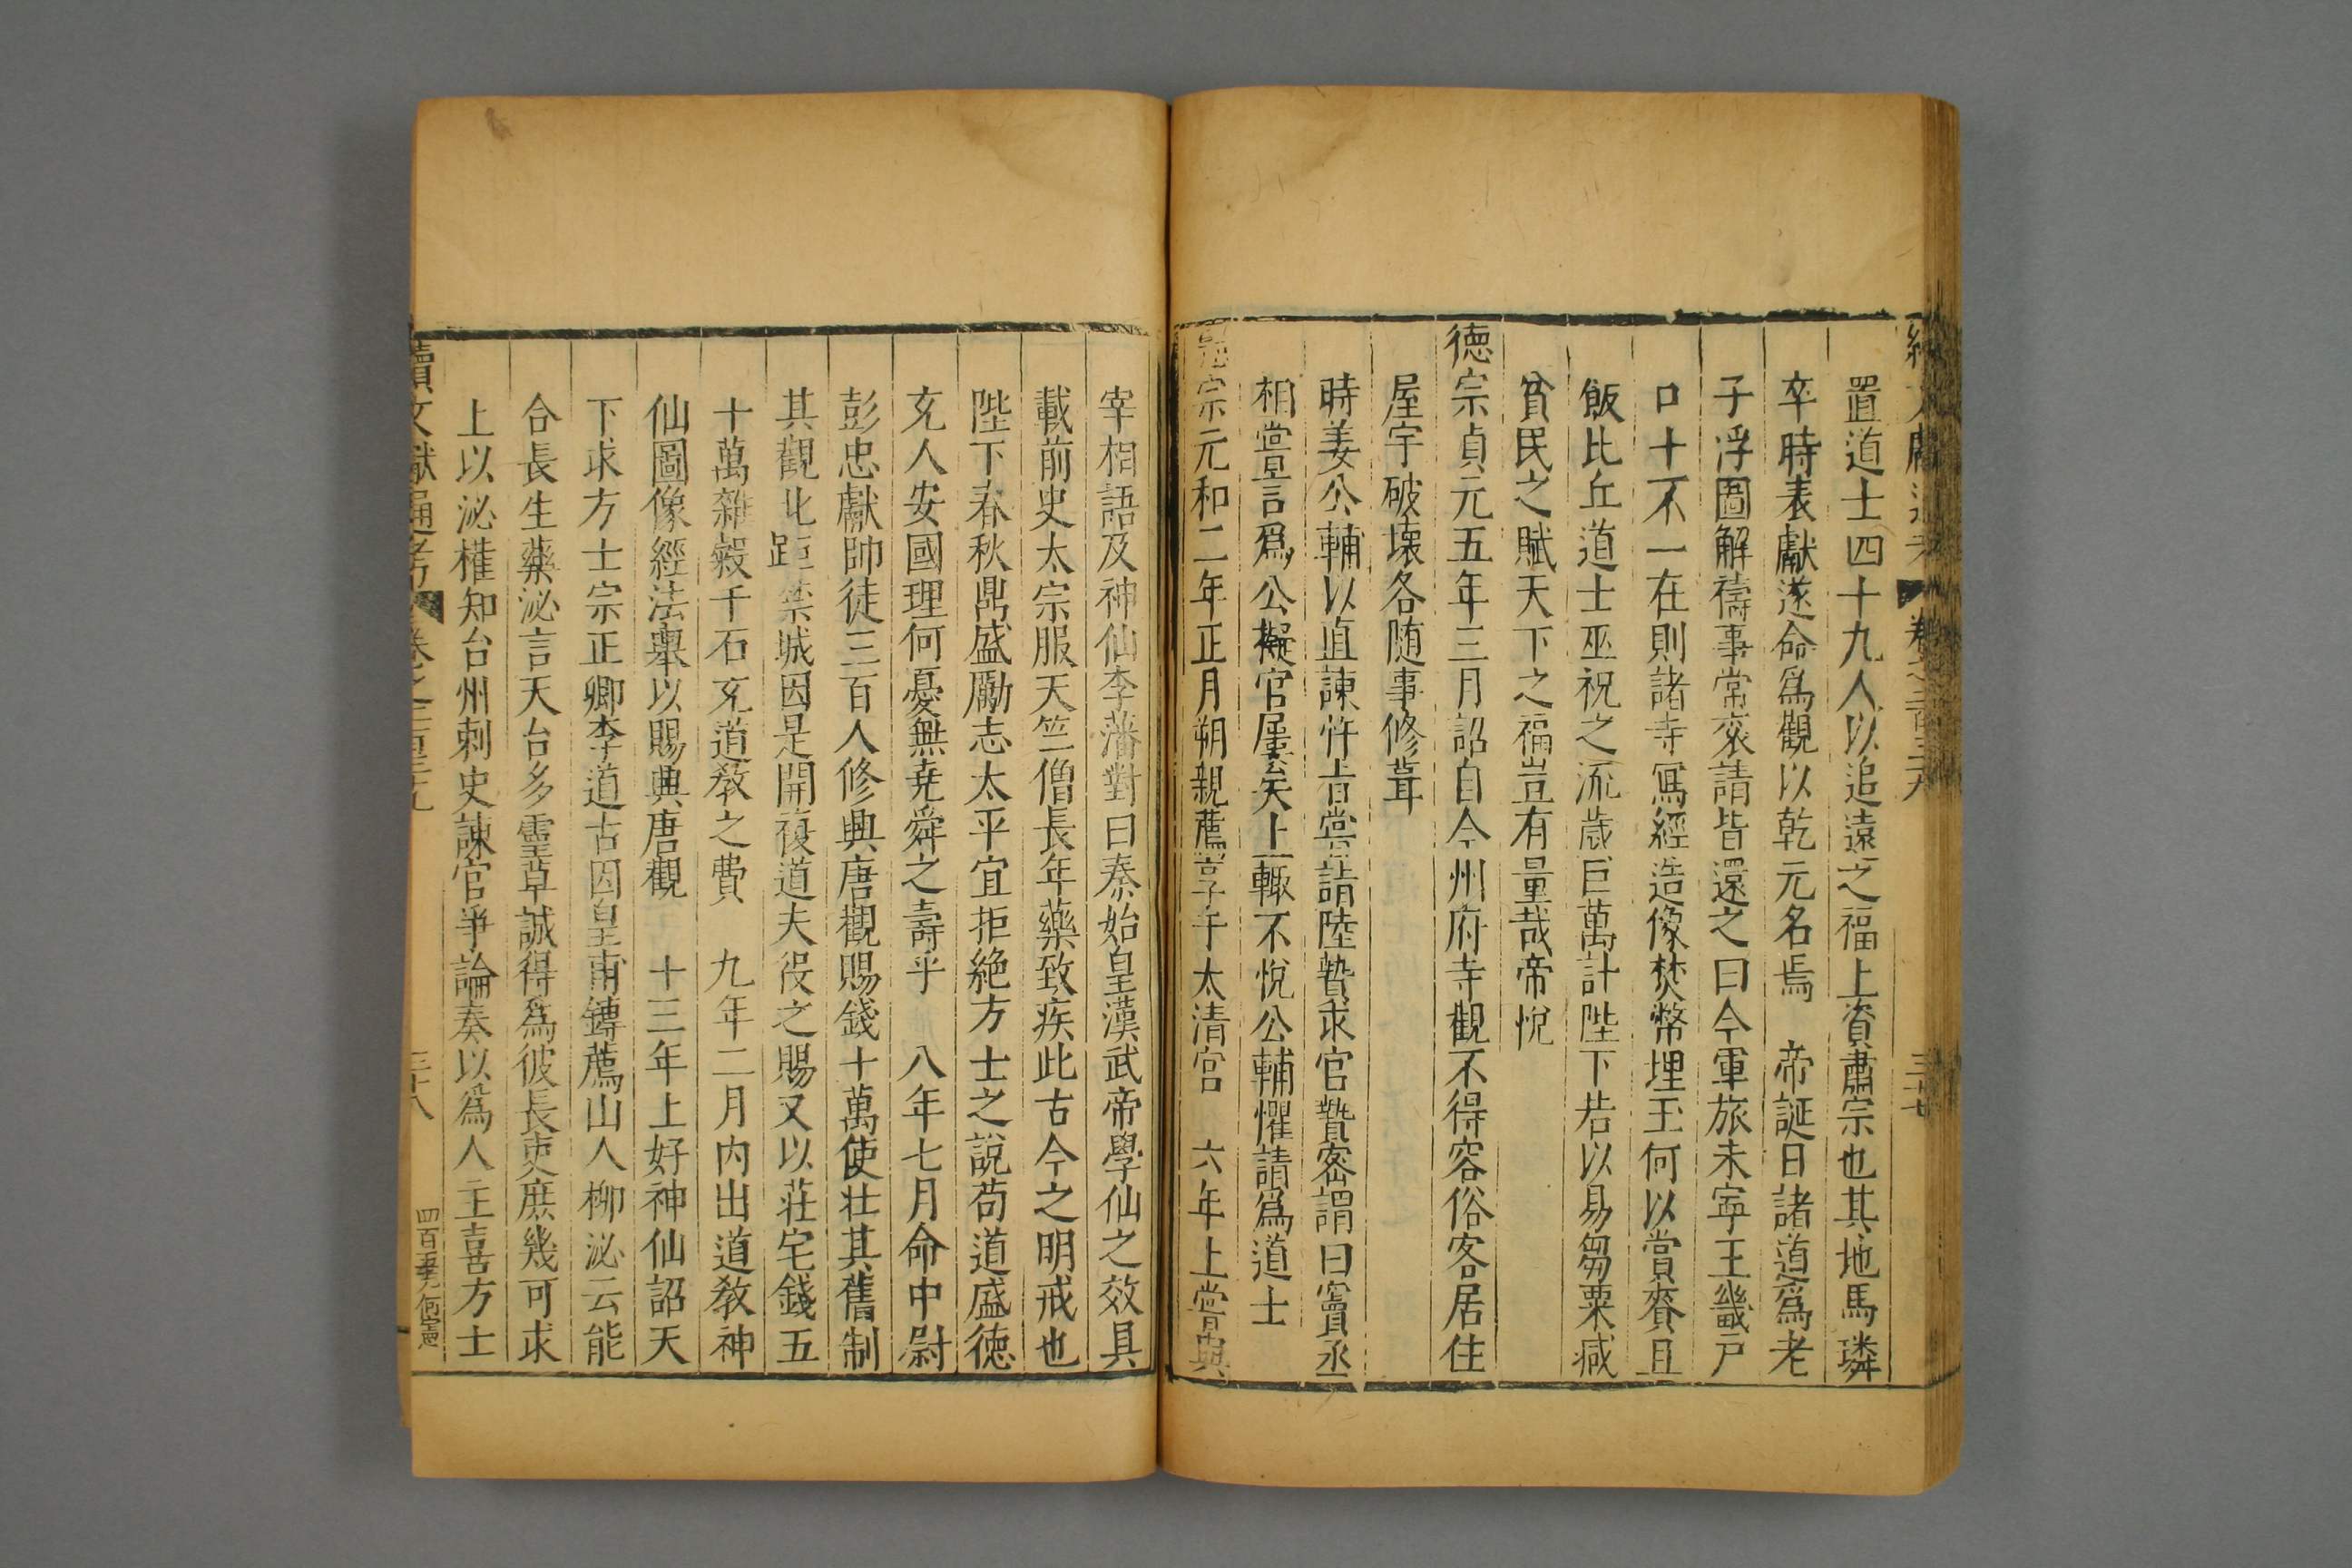 置道士四十九人以追遠之福上資肅宗也其地馬璘
卒時表獻遂命爲觀以乾元名焉　帝誕日諸道爲老
子浮圖解禱事常衮請皆還之曰今軍旅未寧王畿戸
口十不一在則諸寺寫經造像焚幣埋玉何以賞賚且
飯比丘道士巫祝之流歲巨萬計陛下若以易芻粟减
貧民之賦天下之福豈有量哉帝悅
德宗貞元五年三月詔自今州府寺觀不得容俗客居住
屋宇破壞各随事修葺
時姜公輔以直諫忤旨嘗請陸贄求官贄密謂曰竇丞
相嘗言爲公擬官屢矣上輒不悅公輔懼請爲道士
宗元和二年正月朔親薦享于太清宮　六年上嘗與
宰相語及神仙李藩對曰秦始皇漢武帝學仙之效具
載前史太宗服天竺僧長年藥致疾此古今之明戒也
陛下春秋鼎盛勵志太平宜拒絶方士之說苟道盛德
充人安國理何憂無尭舜之壽乎　八年七月命中尉
彭忠獻帥徒三百人修興唐觀賜錢十萬使壮其舊制
其觀北距禁城因是開複道夫役之賜又以莊宅錢五
十萬雜榖千石充道教之費　九年二月內出道教神
仙圖像經法舉以賜興唐觀　十三年上好神仙詔天
下求方士宗正卿李道古因皇甫鎛薦山人柳泌云能
合長生藥泌言天台多靈草誠得爲彼長吏庶幾可求
上以泌權知台州刺史諫官爭論奏以爲人主喜方士
續文獻通考　卷之二百三十九　三十八